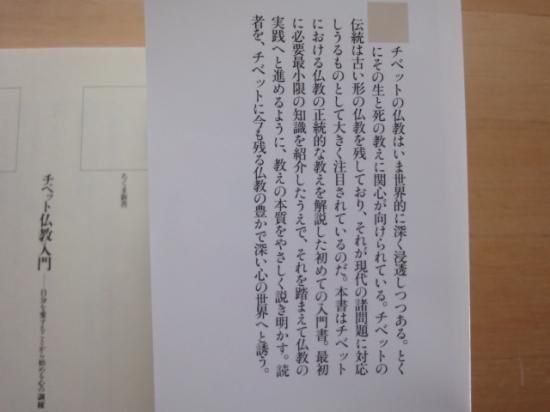 チベットの仏教はいま世界的に深く浸透しつつある。とく
にその生と死の教えに関心が向けられている。チベットの
伝統は古い形の仏教を残しており、それが現代の諸問題に対応
しうるものとして大きく注目されているのだ。本書はチベット
における仏教の正統的な教えを解説した初めての入門書。最初
に必要最小限の知識を紹介したうえで、それを踏まえて仏教の
実践へと進めるように、教えの本質をやさしく説き明かす。読
者を、チベットに今も残る仏教の豊かで深い心の世界へと誘う。
ちくま新書
チベット仏教入門
──自分を愛することから始める心の訓練